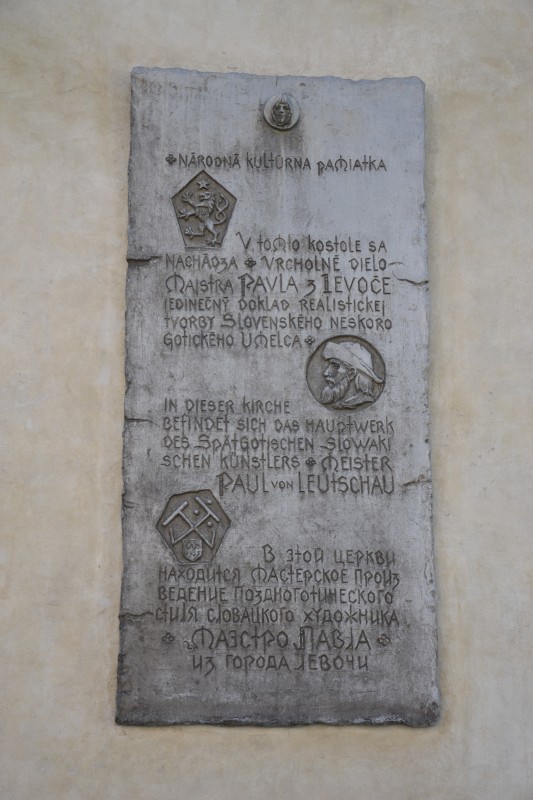 NÁRODNÁ KULTÚRNA PAMIATKA
V TOMTO KOSTOLE SA
NACHÁDZA VRCHOLNÉ DIELO
MAJSTRA PAVLA Z LEVOČE
JEDINEČNÝ DOKLAD REALISTICKEJ
TVORBY SLOVENSKÉHO NESKORO
GOTICKÉHO UMELCA
IN DIESER KIRCHE
BEFINDET SICH DAS HAUPTWERK
DES SPÄTGOTISCHEN SLOWAKI
SCHEN KÜNSTLERS MEISTER
PAUL VON LEUTSCHAU
В ЭТОЙ ЦЕРКВИ
НАХОДИТСЯ МАСТЕРСКОЕ ПРОИЗ
ВЕДЕНИЕ ПОЗДНОГОТИЧЕСКОГО
СТИЛЯ СЛОВАЦКОГО ХУДОЖНИКА
МАЭСТРО ПАВЛА
ИЗ ГОРОДА ЛЕВОЧИ